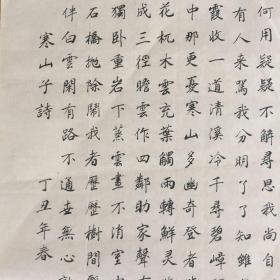 何用疑疑不解尋思我尚自
有人來罵我分明了了知雖
霞收一道清溪冷千尋碧嶂
中那更憂寒山多幽奇登者
花杌木雲充葉觸雨轉鮮
成三徑瞻雲作四鄰助歌聲有
獨臥重岩下蒸雲晝不消室
石橋拋除鬧我者歷歷樹間
伴白雲閑有路不通世無心
寒山子詩 丁丑年春